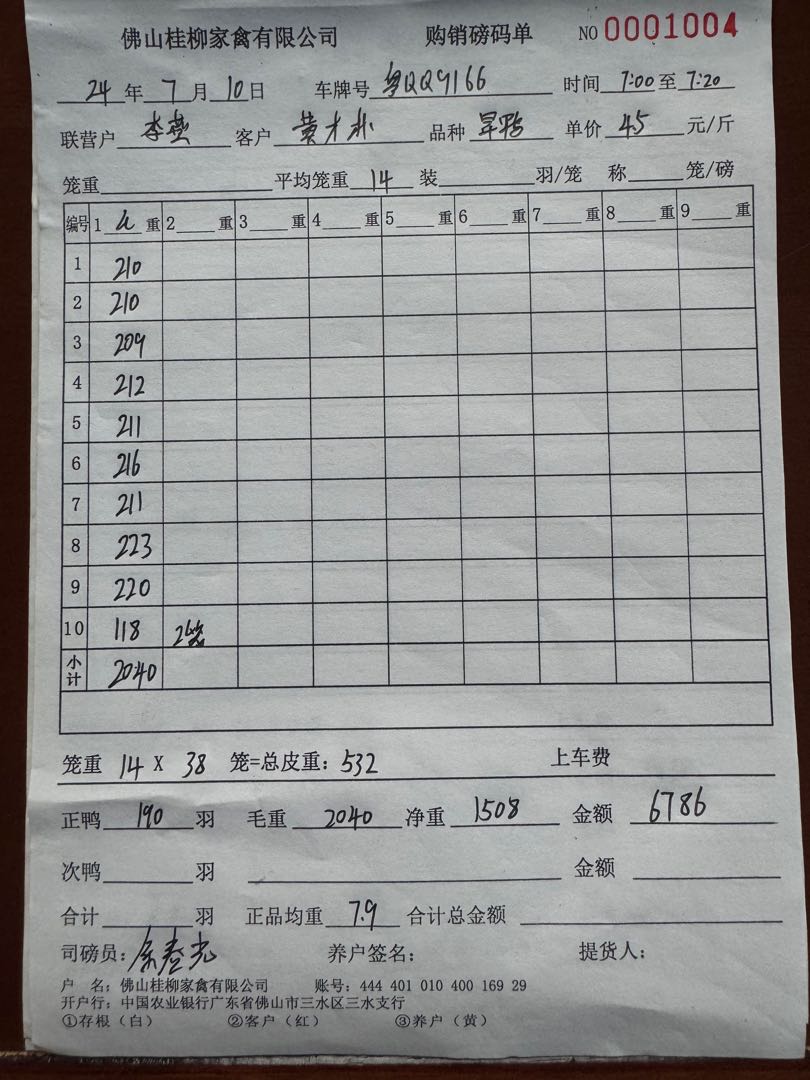 佛山桂柳家禽有限公司 购销磅码单 NO 0001004
24 年 7 月 10 日 车牌号 粤QQ9166 时间 7:00 至 7:20
联营户 李燕 客户 黄才林 品种 旱鸭 单价 45 元/斤
笼重 平均笼重 14 装 羽/笼 称 笼/磅
编号 1 4 重 2 重 3 重 4 重 5 重 6 重 7 重 8 重 9 重
1 210
2 210
3 209
4 212
5 211
6 216
7 211
8 223
9 220
10 118 2笼
小计 2040
笼重 14 X 38 笼=总皮重: 532 上车费
正鸭 190 羽 毛重 2040 净重 1508 金额 6786
次鸭 羽 金额
合计 羽 正品均重 7.9 合计总金额
司磅员: 养户签名: 提货人:
户 名: 佛山桂柳家禽有限公司 账号: 444 401 010 400 169 29
开户行: 中国农业银行广东省佛山市三水区三水支行
①存根(白) ②客户(红) ③养户(黄)